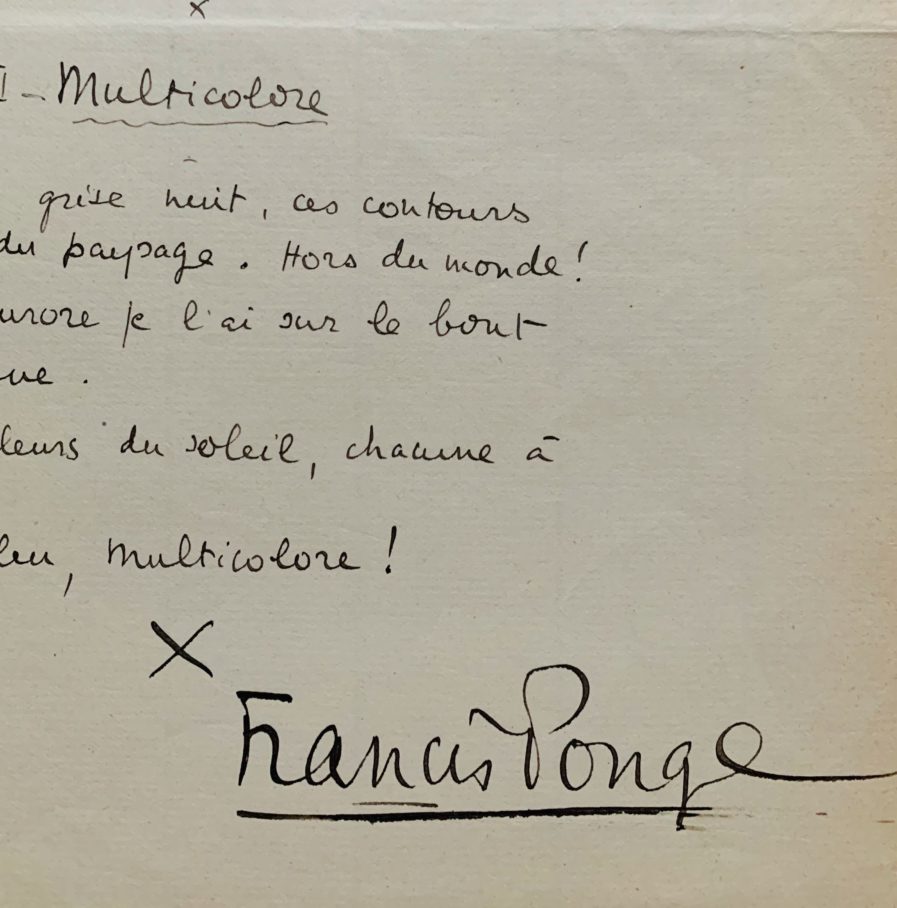 X
I - Multicolore
grise nuit, ces contours
du paysage. Hors du monde!
urore je l'ai sur le bout
ue.
leurs du soleil, chacune à
leu, multicolore!
X
Francis Ponge